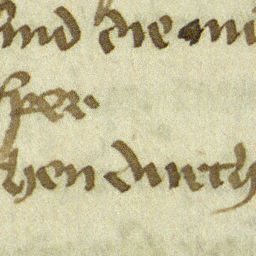 vnd die mi
sper.
hen durch